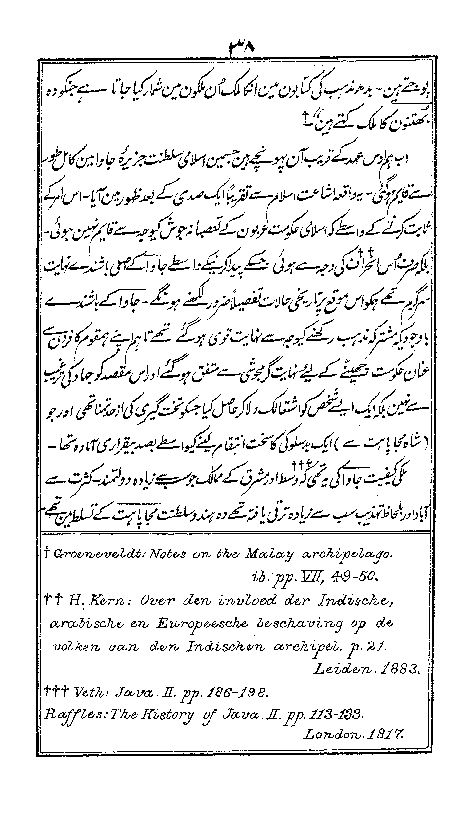 ۳۸
پوجتے ہین - بدھ مذہب کی کتابون مین انکا ملک اُن ملکون مین شمار کیا جاتا ہے جنکو وہ
بُھتنون کا ملک کہتے ہین†
اب ہم اوس عہد کے قریب آن پہونچے ہین جسمین اسلامی سلطنت جزیرۂ جاوا مین کامل طور
سے قایم ہوگئی - یہ واقعہ اشاعت اسلام سے تقریباً ایک صدی کے بعد ظہور مین آیا - اس امر کے
ثابت کرنے کے واسطے کہ اسلامی حکومت عربون کے تعصبانہ جوش کیوجہ سے قایم نہین ہوئی -
بلکہ صرف اُس انحراف†† کی وجہ سے ہوئی جسکے پیدا کرنیکے واسطے جاوا کے اصلی باشندے نہایت
سرگرم تھے ہمکو اس موقع پر تاریخی حالات تفصیلاً ضرور لکھنے ہونگے - جاوا کے باشندے
باوجودیکہ مشترکہ مذہب رکھنے کیوجہ سے نہایت قوی ہوگئے تھے تاہم اپنے ہمقوم کافرون سے
عنان حکومت چھیننے کے لیئے نہایت گرمجوشی سے متفق ہوگئے اور اس مقصد کو جہاد کی ترغیب
سے نہین بلکہ ایک ایسے شخص کو اشتعالک دلاکر حاصل کیا جسکو تخت گیری کی ازحد تمنا تھی اور جو
(شاہ مجاپاہت سے) ایک بدسلوکی کا سخت انتقام لینے کیواسطے بصد بیقراری آمادہ تھا -
ملکی کیفیت جاوا کی یہ تھی††† کہ وسط اور مشرق کے ممالک جو سب سے زیادہ دولتمند - کثرت سے
آباد اور بلحاظ تہذیب سب سے زیادہ ترقی یافتہ تھے وہ ہندو سلطنت مجاپاہت کے تسلط مین تھے
† Groeneveldt: Notes on the Malay archipelago.
ib. pp. VII, 49-50.
†† H. Kern: Over den invloed der Indische,
arabische en Europeesche beschaving op de
volken van den Indischen archipel. p. 21.
Leiden. 1883.
††† Veth: Java. II. pp. 186-198.
Raffles: The History of Java. II. pp. 113-133.
London. 1817.